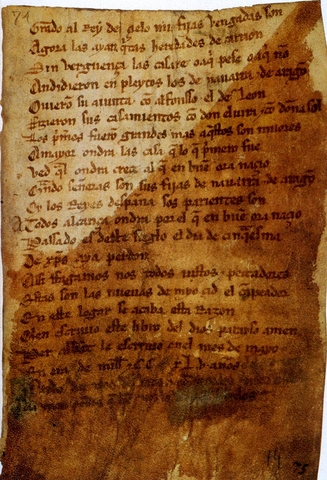 Grado al Rey del çielo mis fijas vengadas son
Agora las ayan qͥtas heredades de carrion
Sin verguença las casare o aqͥ pese o aqͥ nõ
Andidieron en pleytos los de nauarra ⁊ de aragõ
Ouierõ su aiunta cõ alfonsso el de Leon
Fizieron sus casamientos cõ don eluira ⁊ cõ doña sol
Los pͥmos fuerõ grandes mas aq̃stos son miiores
A mayor ondra las casa q̃ lo q̃ pͥmero fue
Ved ql ondra creçe al q̃ en buẽ ora naçio
Quãdo señoras son sus fijas de nauarra ⁊ de aragõ
Oy los Reyes despaña sos parientes son
A todos alcança ondra por el q̃ en buẽ ora naçio
Passado es deste sieglo el dia de cinq̃esma
De xp̃s aya perdon
Assi ffagamos nos todos iustos ⁊ peccadores
Estas son las nueuas de myo çid el cãpeador
En este logar se acaba esta Razon
Quien escriuio este libro del dios parayso amen
Per abbat le escriuio en el mes de mayo
En era de mill ⁊ CC xLv años